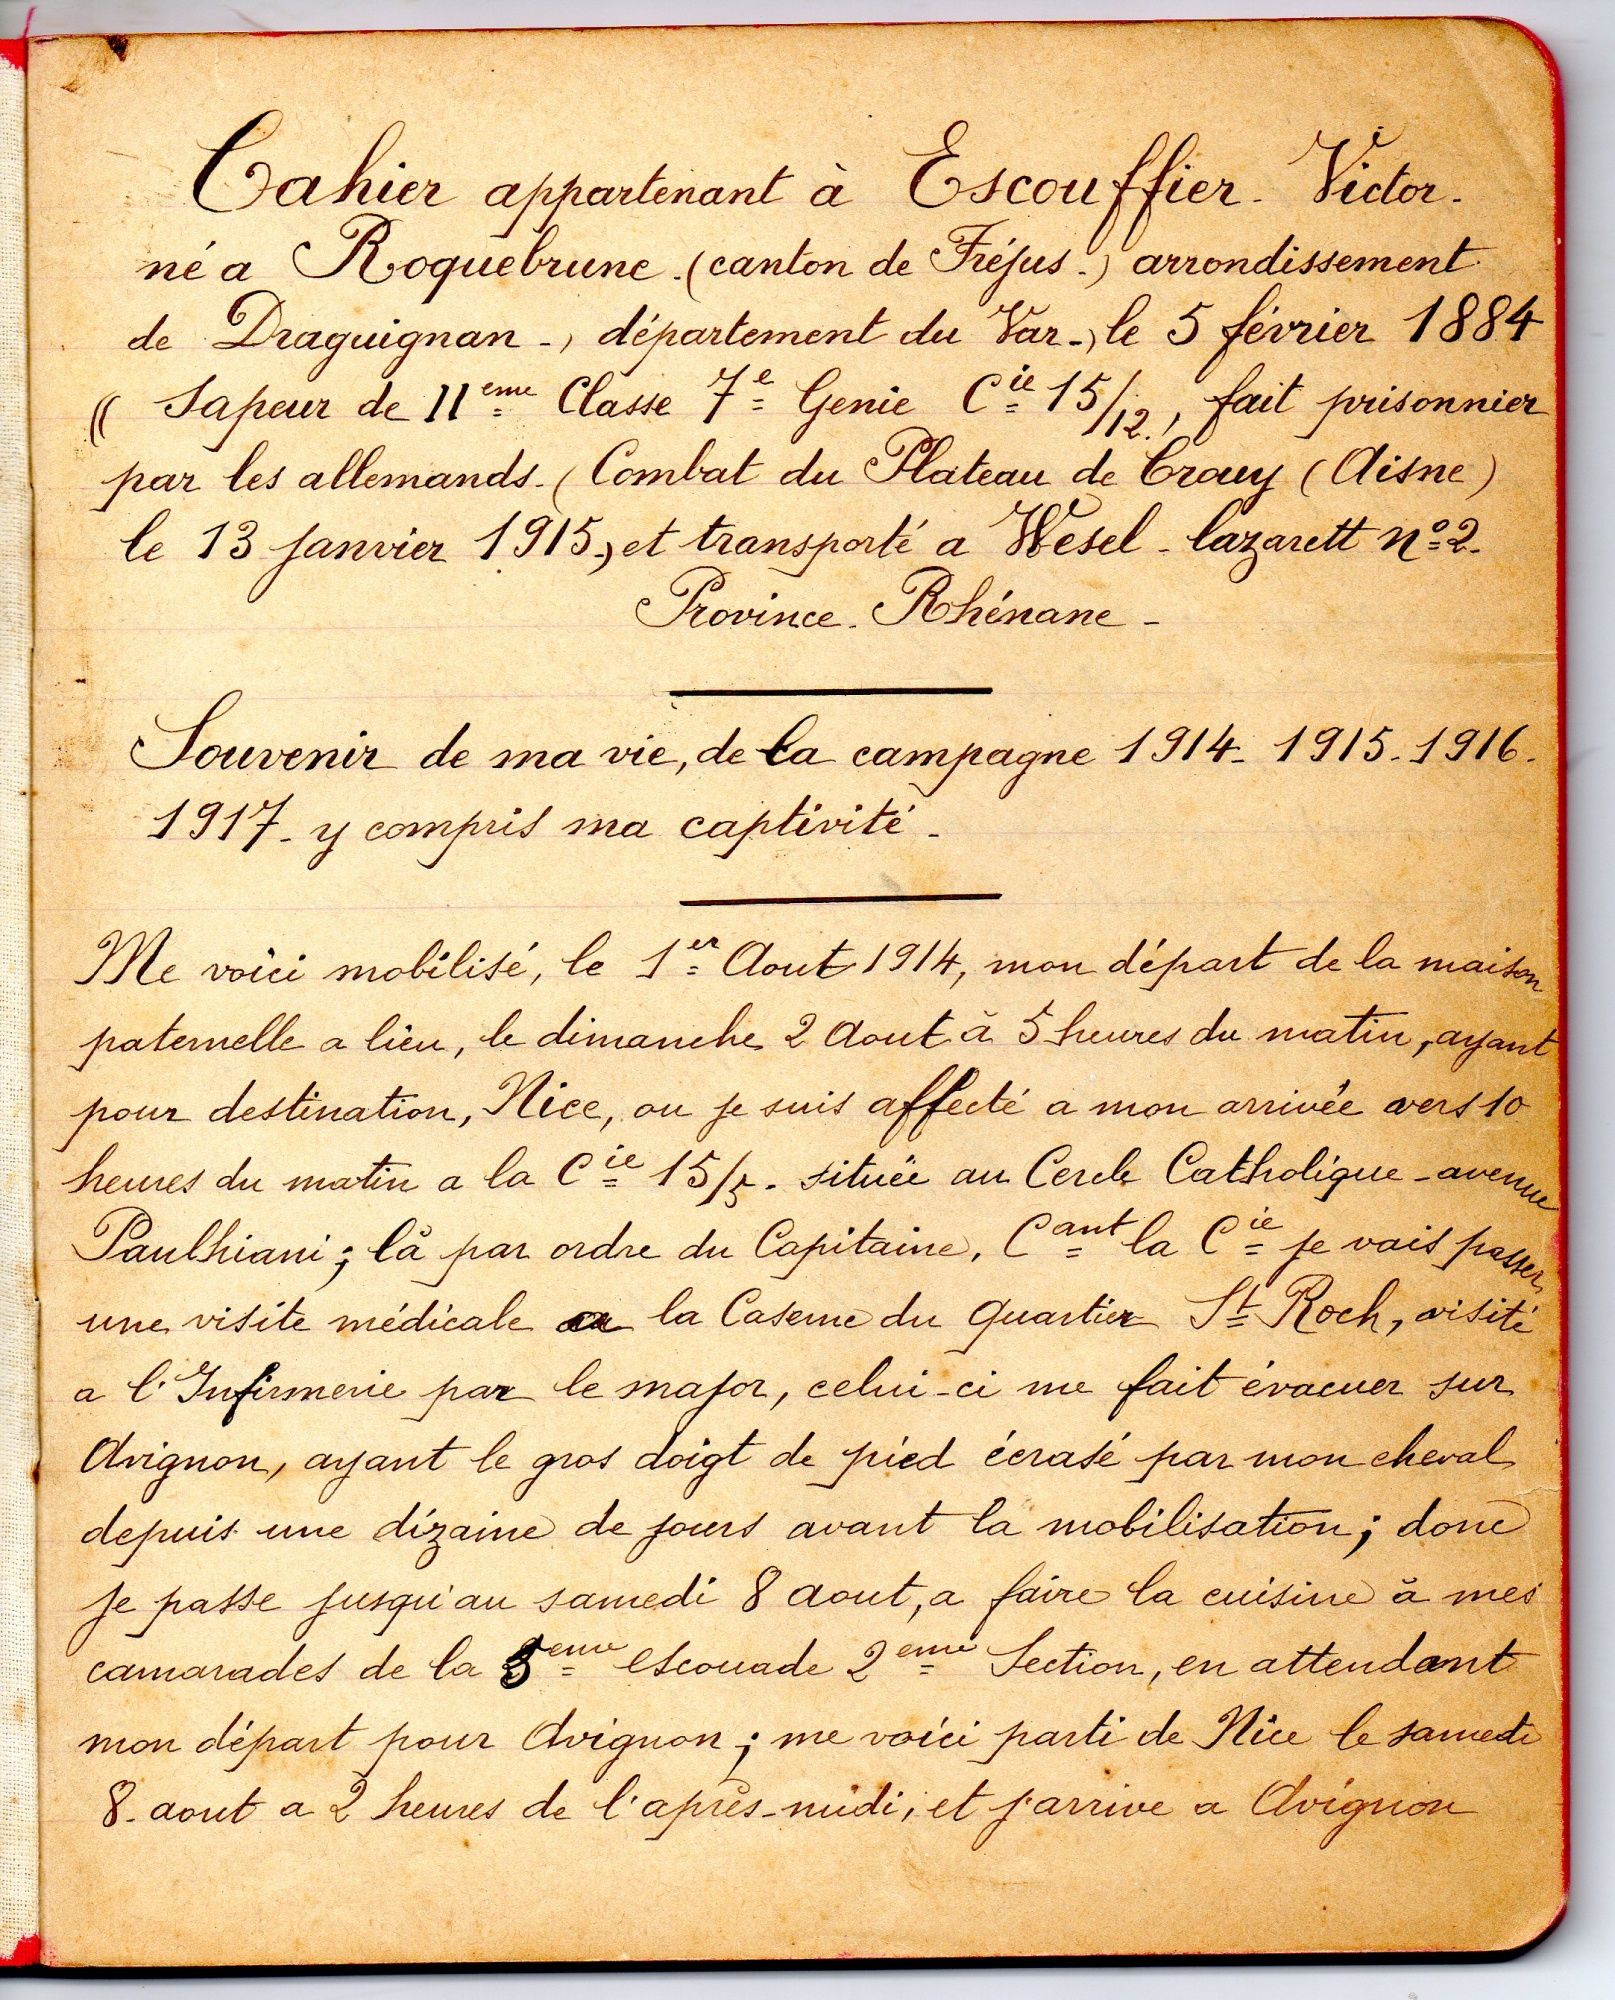 Cahier appartenant à Escouffier. Victor.
né a Roquebrune. (canton de Fréjus.) arrondissement
de Draguignan-, département du Var-, le 5 février 1884
(( Sapeur de II eme Classe 7e Genie Cie 15/12., fait prisonnier
par les allemands. (Combat du Plateau de Crouy (Aisne)
le 13 janvier 1915, et transporté a Wesel - lazarett nº 2.
Province. Rhénane -
Souvenir de ma vie, de la campagne 1914. 1915. 1916.
1917. y compris ma captivité.
Me voici mobilisé, le 1er Aout 1914, mon départ de la maison
paternelle a lieu, le dimanche 2 Aout à 5 heures du matin, ayant
pour destination, Nice, ou je suis affecté a mon arrivée vers 10
heures du matin a la Cie 15/5. située au Cercle Catholique - avenue
Paulhiani; là par ordre du Capitaine, Cant la Cie je vais passer
une visite médicale a la Caserne du quartier St Roch, visité
a l'Infirmerie par le major, celui-ci me fait évacuer sur
Avignon, ayant le gros doigt de pied écrasé par mon cheval
depuis une dizaine de jours avant la mobilisation; donc
je passe jusqu'au samedi 8 aout, a faire la cuisine à mes
camarades de la 5eme escouade 2eme Section, en attendant
mon départ pour Avignon; me voici parti de Nice le samedi
8. aout a 2 heures de l'après-midi, et j'arrive a Avignon